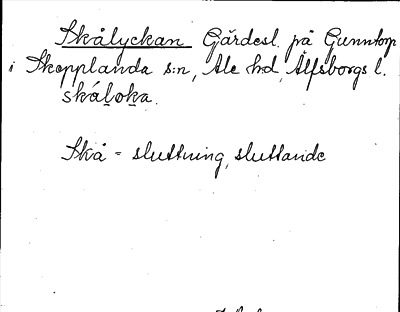 Skålyckan Gärdesl. på Gunntorp
i Skepplanda s:n, Ale hd, Älfsborgs l.
skáloka.
Skå = sluttning, sluttande